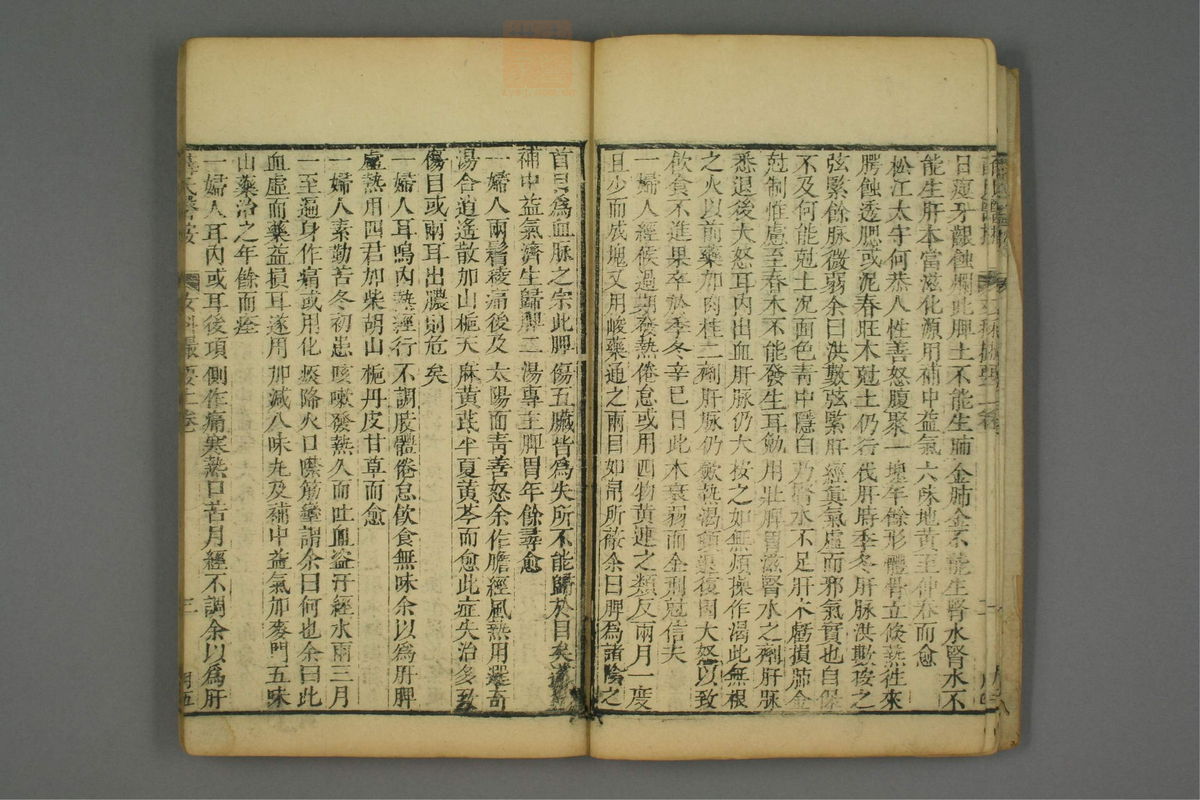 日夏牙齦蝕爛此脾土不能生肺金肺金不能生腎水腎水不
能生肝木當滋化源用補中益氣六味地黃至仲春而愈
松江太守何恭人性善怒腹聚一塊年餘形體骨立倏熱往來
腭蝕透腮或泥春旺木尅土仍行伐肝時季冬肝脉洪數按之
弦緊餘脉微弱余曰洪數弦緊肝經眞氣虛而邪氣實也自保
不及何能尅土况面色靑中隱白乃腎水不足肝木虧損肺金
尅制惟慮至春木不能發生耳勉用壯脾胃滋腎水之劑肝脉
悉退後大怒耳內出血肝脉仍大按之如無煩操作渴此無根
之火以前藥加肉桂二劑肝脉仍歛熱渴頓退復因大怒以致
飲食不進果卒於季冬辛巳日此木衰弱而金刑尅信夫
一婦人經候過期發熱倦怠或用四物黃連之類反兩月一度
且少而成塊又用峻藥通之兩目如帛所蔽余曰脾爲諸陰之
首目爲血脉之宗此脾傷五臟皆爲失所不能歸於目矣遂
補中益氣濟生歸脾二湯專主脾胃年餘尋愈
一婦人兩鬢稜痛後及太陽面靑善怒余作膽經風熱用選奇
湯合逍遙散加山梔天麻黃芪半夏黃芩而愈此症失治多致
傷目或兩耳出膿則危矣
一婦人耳鳴內熱經行不調肢體倦怠飲食無味余以爲肝脾
虛熱用四君加柴胡山梔丹皮甘草而愈
一婦人素勤苦冬初患咳嗽發熱久而吐血盜汗經水兩三月
一至遍身作痛或用化痰降火口噤筋攣謂余曰何也余曰此
血虛而藥益損耳遂用加減八味丸及補中益氣加麥門五味
山藥治之年餘而痊
一婦人耳內或耳後項側作痛寒熱口苦月經不調余以爲肝